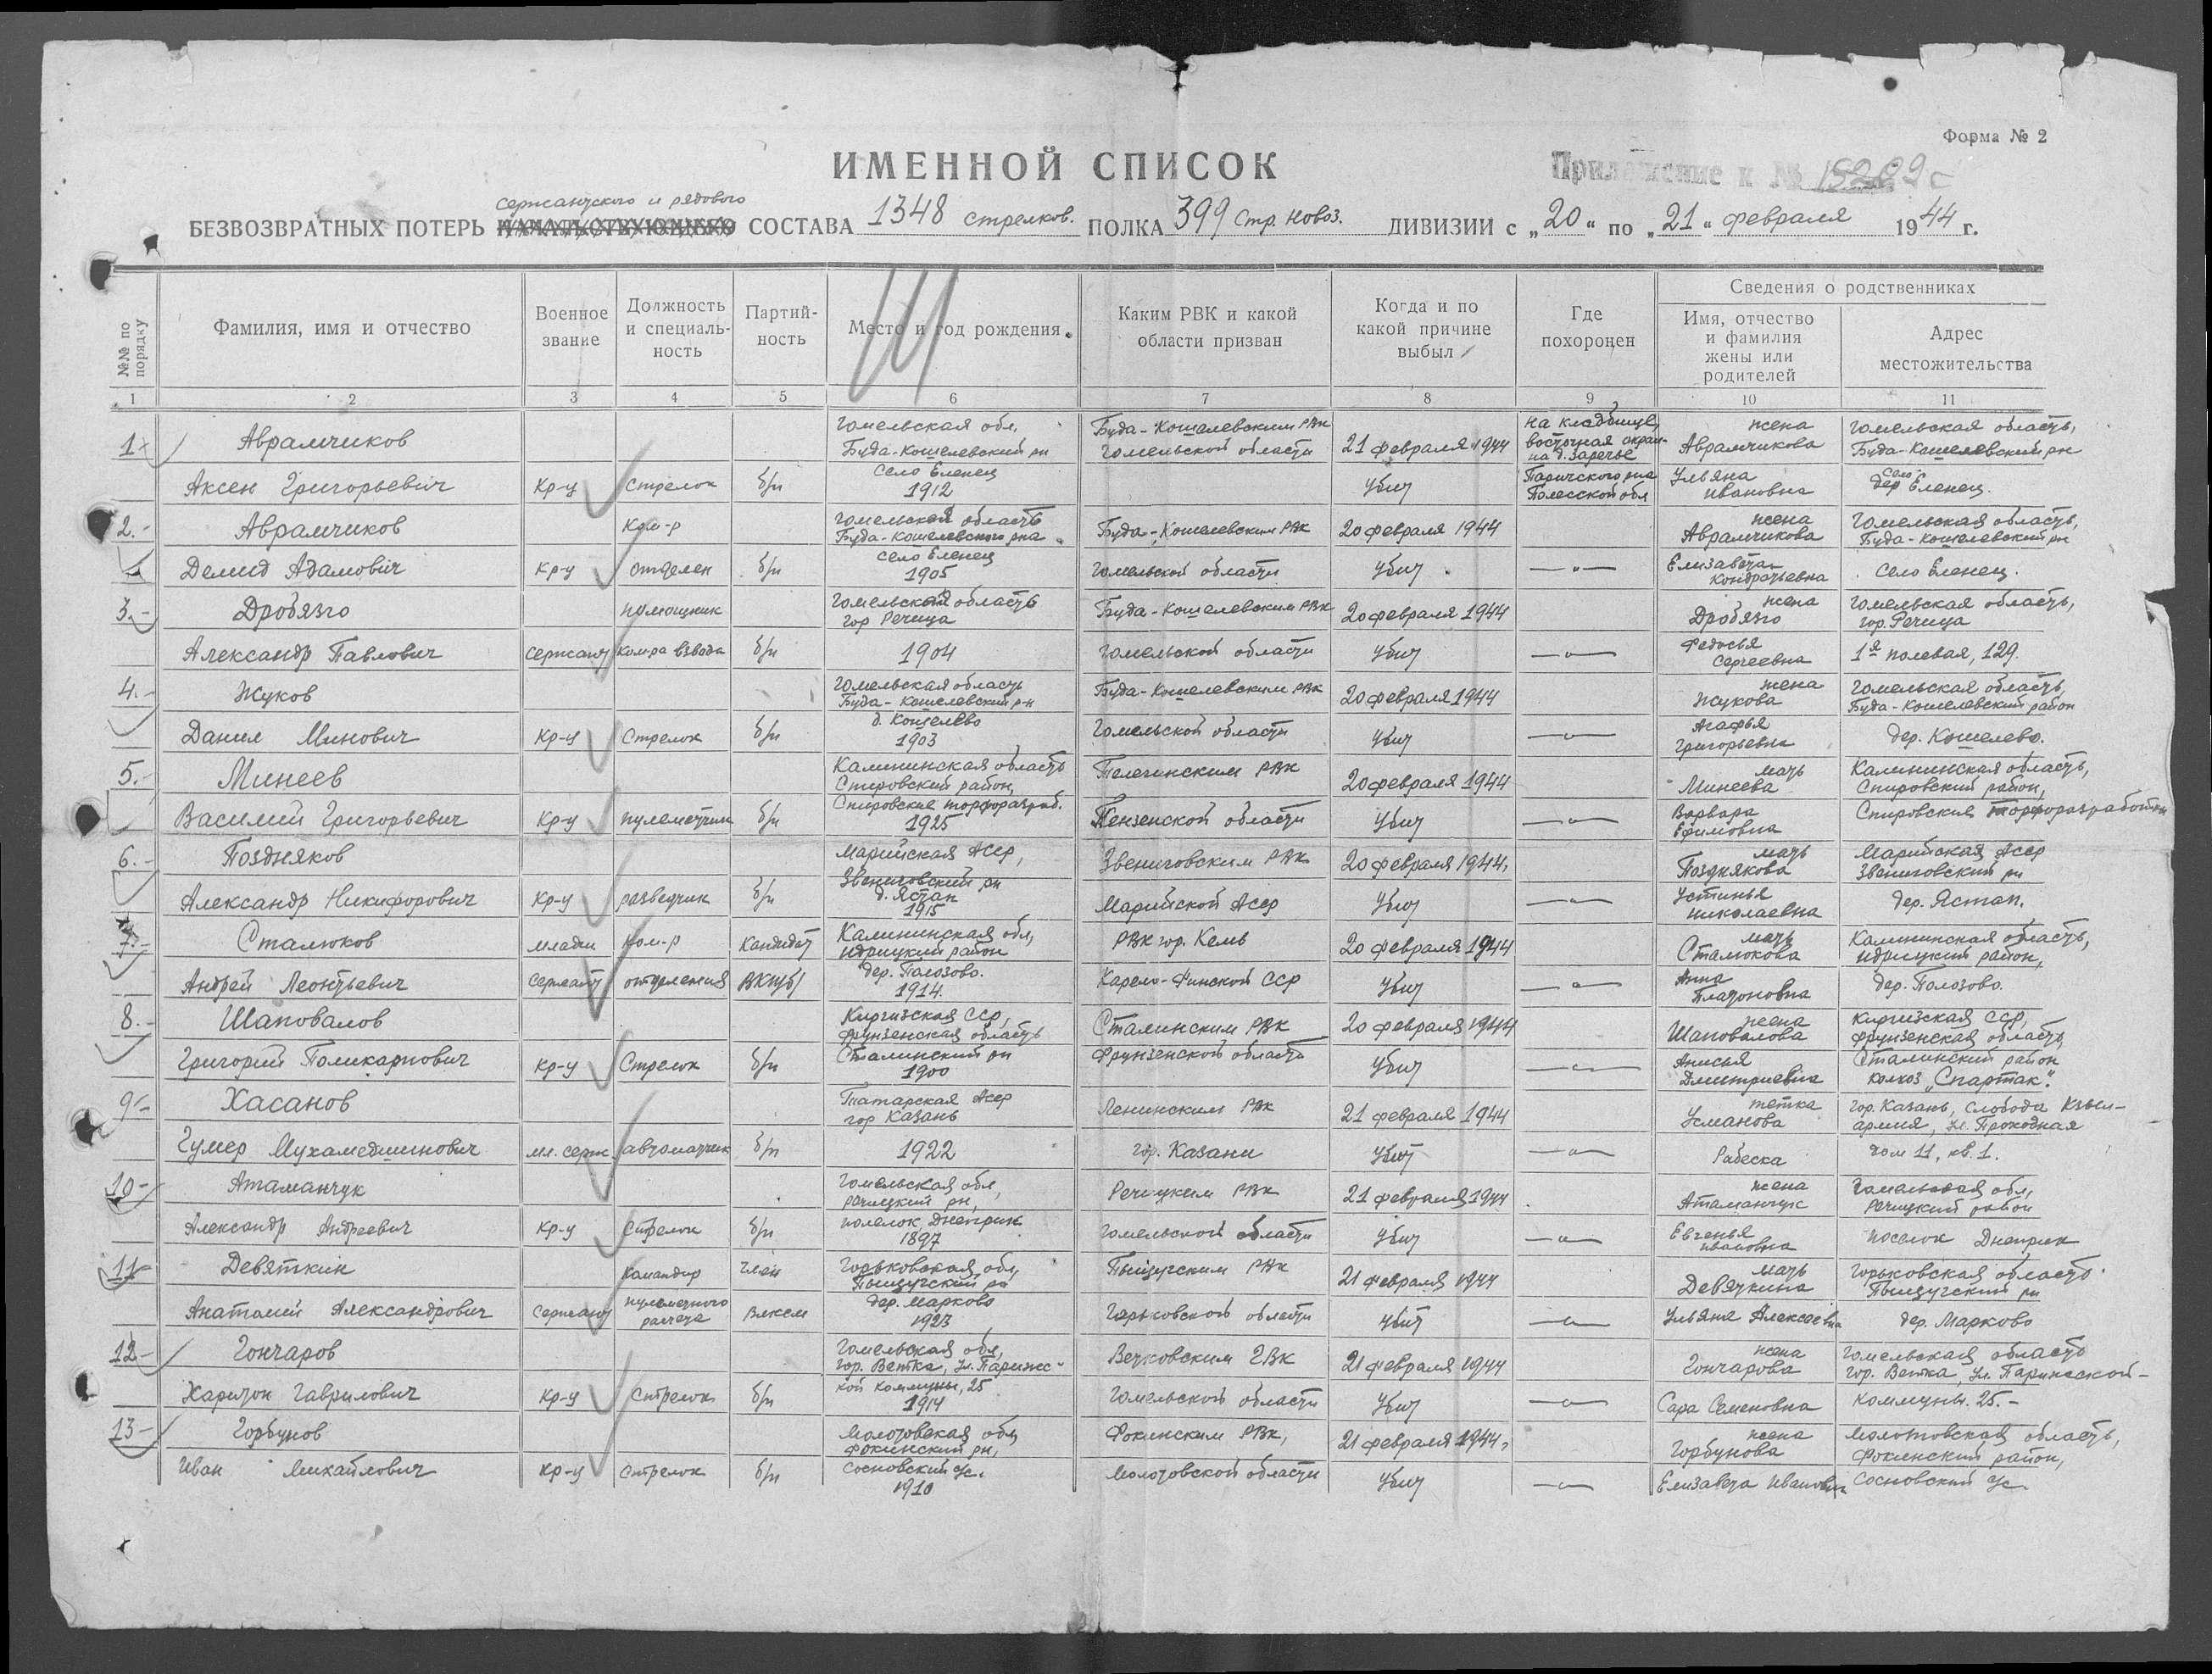 Форма № 2
ИМЕННОЙ СПИСОК
Приложение к № 15209с
сержантского и рядового
БЕЗВОЗВРАТНЫХ ПОТЕРЬ НАЧАЛЬСТВУЮЩЕГО СОСТАВА 1348 стрелков. ПОЛКА 399 Стр. Новоз. ДИВИЗИИ с „20“ по „21“ февраля 1944 г.
№№ по порядку
Фамилия, имя и отчество
Военное звание
Должность и специаль-ность
Партий-ность
Место и год рождения
Каким РВК и какой области призван
Когда и по какой причине выбыл
Где похоронен
Сведения о родственниках
Имя, отчество и фамилия жены или родителей
Адрес местожительства
1 2 3 4 5 6 7 8 9 10 11
1 Аврамчиков Гомельская обл. Буда-Кошелевский рн Буда-Кошелевским РВк Гомельской области 21 февраля 1944 на кладбище, восточная окраи-на д. Заречье жена Аврамчикова Гомельская область, Буда-Кошелевский рн
Аксен Григорьевич Кр-ц Стрелок б/п село Еленец 1912 убит Паричского р-на Полесской обл Ульяна Ивановна село дер Еленец.
2.- Аврамчиков Ком-р Гомельской область Буда-Кошелевского рна Буда-Кошелевским РВк 20 февраля 1944 жена Аврамчикова Гомельская область, Буда-Кошелевский рн
Демид Адамович Кр-ц отделен б/п село Еленец 1905 Гомельской области убит. —"— Елизавета Кондратьевна село Еленец.
3.- Дробязго помощник Гомельской область гор Речица Буда-Кошелевским РВк 20 февраля 1944 жена Дробязго Гомельская область, гор. Речица
Александр Павлович сержант ком-ра взвода б/п 1904 Гомельской области убит —"— Федосья Сергеевна 1я полевая, 129.
4.- Жуков Гомельская область Буда-Кошелевский р-н Буда-Кошелевским РВк 20 февраля 1944 жена Жукова Гомельская область, Буда-Кошелевский район
Данил Минович Кр-ц Стрелок б/п д. Кошелево 1903 Гомельской области убит —"— Агафья Григорьевна дер. Кошелево.
5.- Минеев Калининская область Спировский район, Телегинским РВк 20 февраля 1944 мать Минеева Калининская область, Спировский район,
Василий Григорьевич Кр-ц пулеметчик б/п Спировские торфоразраб. 1925 Пензенской области убит —"— Варвара Ефимовна Спировские торфоразработки
6.- Поздняков Марийская Асср, Звениговским РВк 20 февраля 1944. мать Позднякова Марийская Асср Звениговский рн
Александр Никифорович Кр-ц разведчик б/п Звениговский рн д. Ястап 1915 Марийской Асср убит —"— Устинья Николаевна дер. Ястап.
7.- Сталюков младш ком-р Кандидат Калининская обл, Идрицкий район РВк гор. Кемь 20 февраля 1944 мать Сталюкова Калининская область, Идрицкий район,
Андрей Леонтьевич сержант отделения ВКП(б) дер. Полозово. 1914. Карело-Финской ССР убит —"— Анна Платоновна дер. Полозово.
8.- Шаповалов Киргизская сср, Фрунзенская область Сталинским РВк 20 февраля 1944 жена Шаповалова Киргизская сср, Фрунзенская область,
Григорий Поликарпович Кр-ц Стрелок б/п Сталинский рн 1900 Фрунзенской области убит —"— Анисья Дмитриевна Сталинский район колхоз „Спартак".
9- Хасанов Татарская Асср гор Казань Ленинским РВк 21 февраля 1944 тетка Усманова гор. Казань, слобода Кзыл-армия, ул. Проходная
Гумер Мухамедшинович мл. серж. автоматчик б/п 1922 гор. Казани убит —"— Рабеска дом 11, кв. 1.
10- Атаманчук Гомельская обл, речицкий рн, Речицким РВк 21 февраля 1944 жена Атаманчук Гомельская обл, Речицкий район
Александр Андреевич Кр-ц Стрелок б/п поселок Днеприк 1897 Гомельской области убит —"— Евгенья Ивановна поселок Днеприк
11- Девяткин Командир член Горьковская обл, Тоншаевский Пыщугским РВк 21 февраля 1944 мать Девяткина Горьковская область. Пыщугский рн
Анатолий Александрович Сержант пулеметного расчета Влксм дер. Марково 1923 Горьковской области убит —"— Ульяна Алексеевна дер. Марково
12- Гончаров Гомельская обл, гор. Ветка, ул. Парижс- Ветковским РВк 21 февраля 1944 жена Гончарова Гомельская область гор. Ветка, ул. Парижской-
Харитон Гаврилович Кр-ц Стрелок б/п кой коммуны, 25 1914 Гомельской области убит —"— Сара Семеновна Коммуны. 25.-
13- Горбунов Молотовская обл, Фокинский рн, Фокинским РВк, 21 февраля 1944. жена Горбунова Молотовская область, Фокинский район,
Иван Михайлович Кр-ц Стрелок б/п Сосновский с/с. 1910 Молотовской области убит —"— Елизавета Ивановна Сосновский с/с.